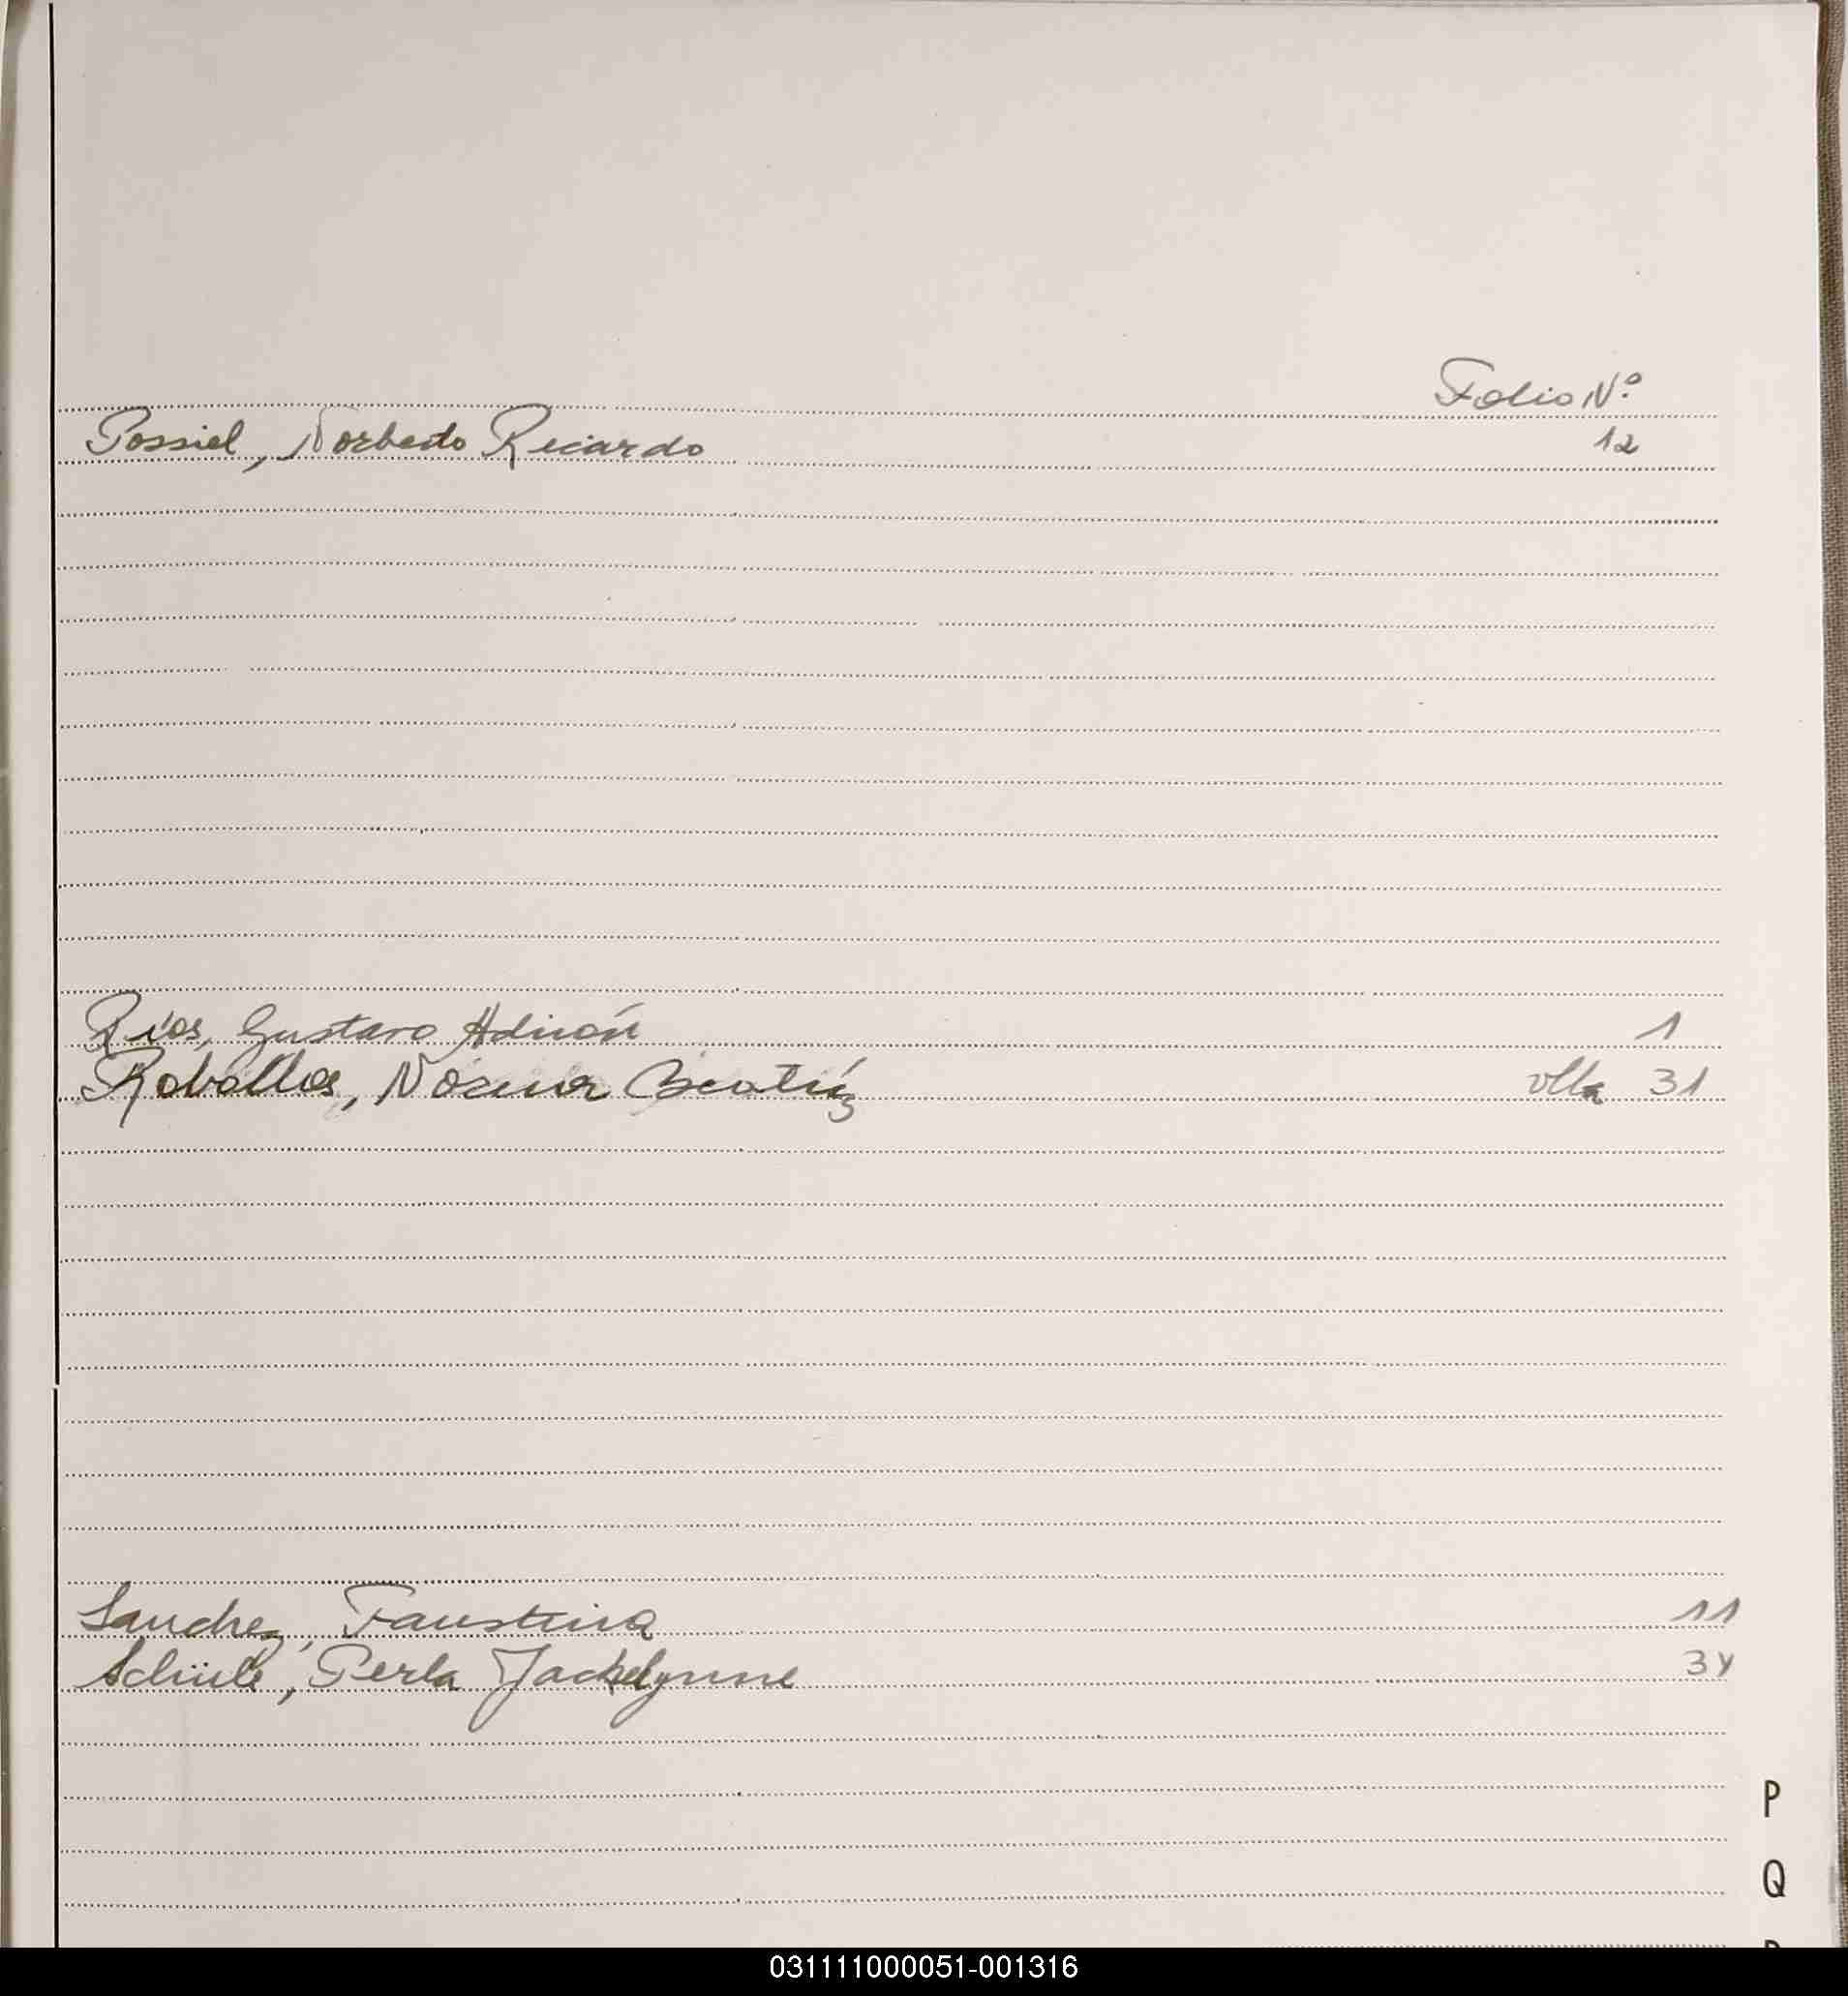 Folio Nº
Possiel, Norberto Ricardo 12
Ríos, Gustavo Adrián 1
Roballos, Norma Beatríz vlta 31
Sanchez, Faustina 11
Schüle, Perla Jackelynne 34
P
Q
031111000051-001316